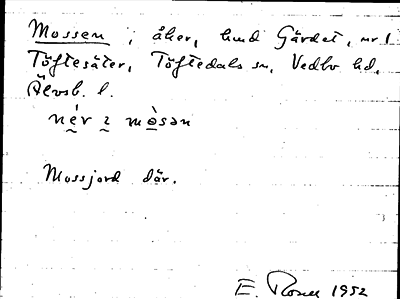 Mossen ; åker, hmd Gärdet, nr 1
Töftesäter, Töftedals sn, Vedbo hd,
Älvsb. l.
nér ı mòsən
Mossjord där.
E. Rosell 1952